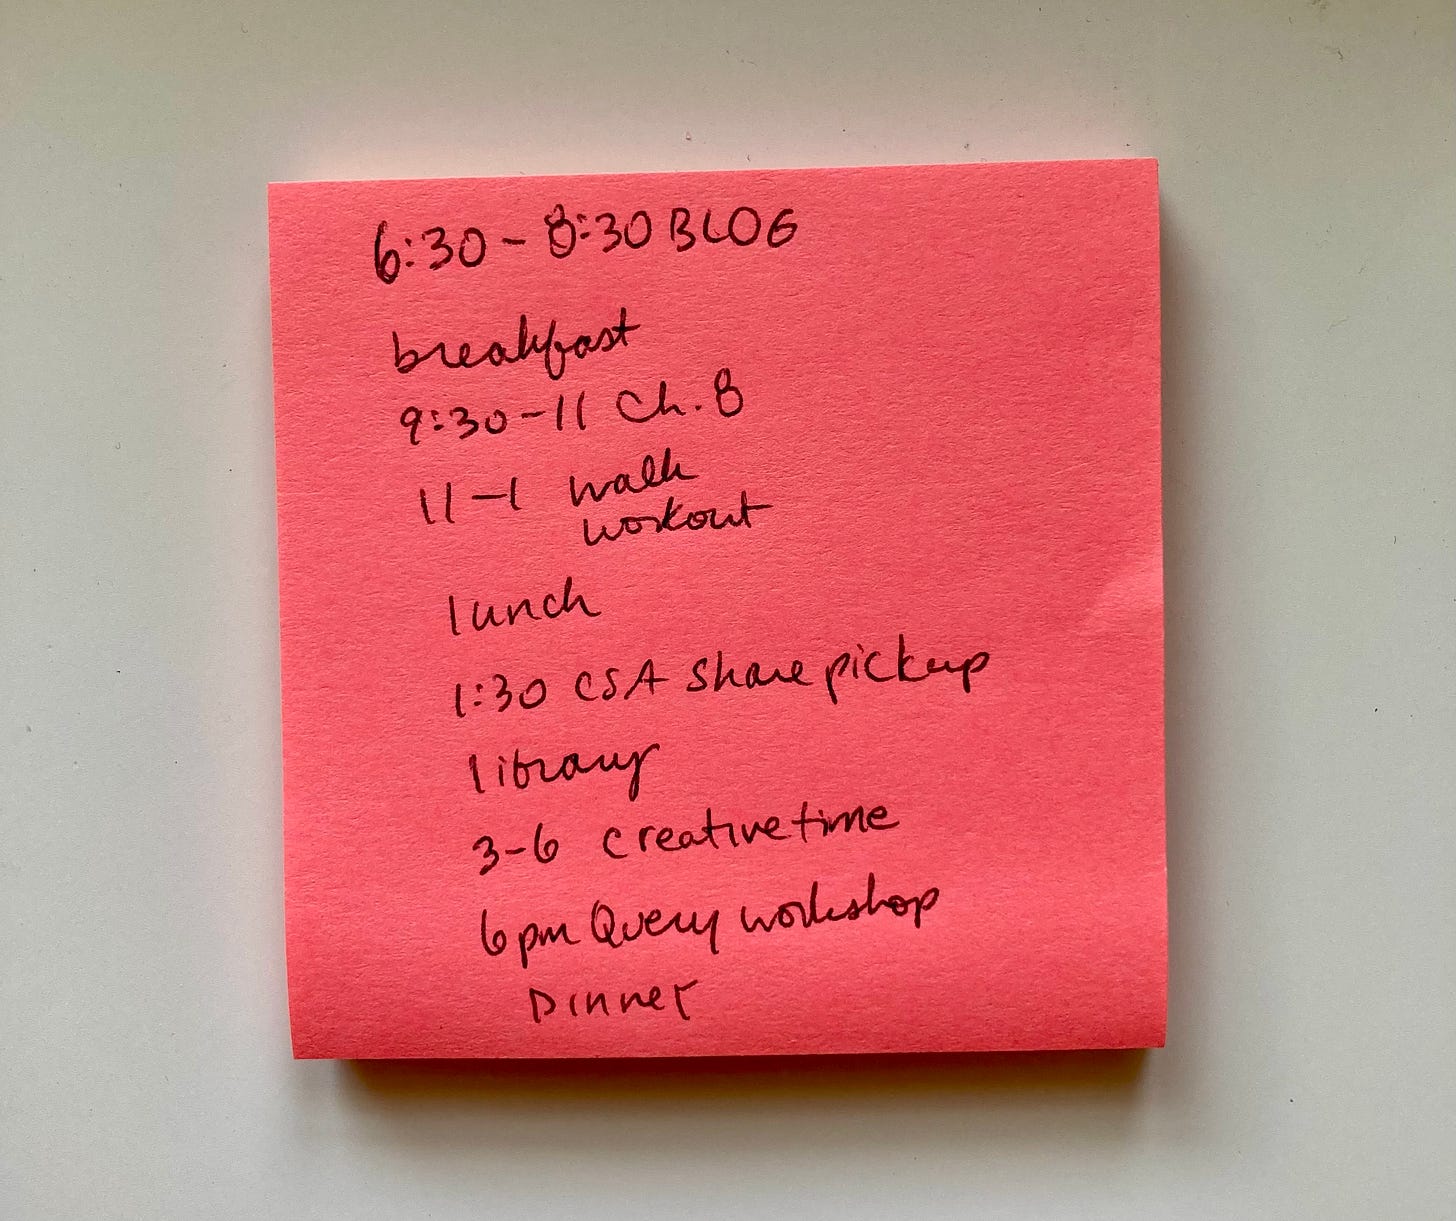 6:30 - 8:30 BLOG
breakfast
9:30-11 Ch. 8
11-1 walk
workout
lunch
1:30 CSA Share pickup
library
3-6 creative time
6pm Query workshop
Dinner